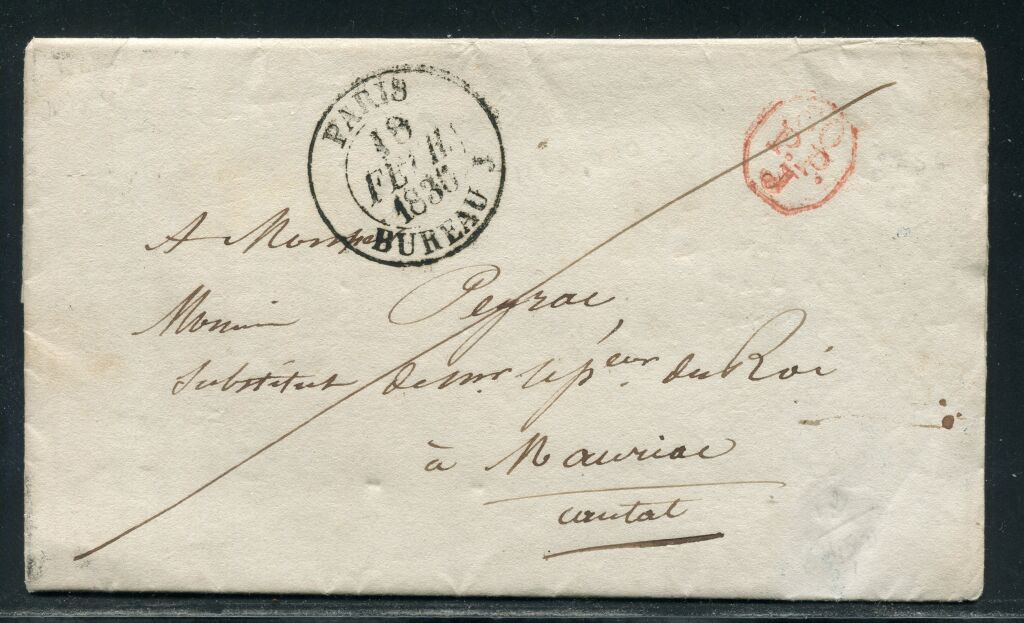 PARIS
18
FEVR
BUREAU J
A Monsieur
Monsieur Peyrac
Substitut de mr. le pr eur. du Roi
à Mauriac
Cantal